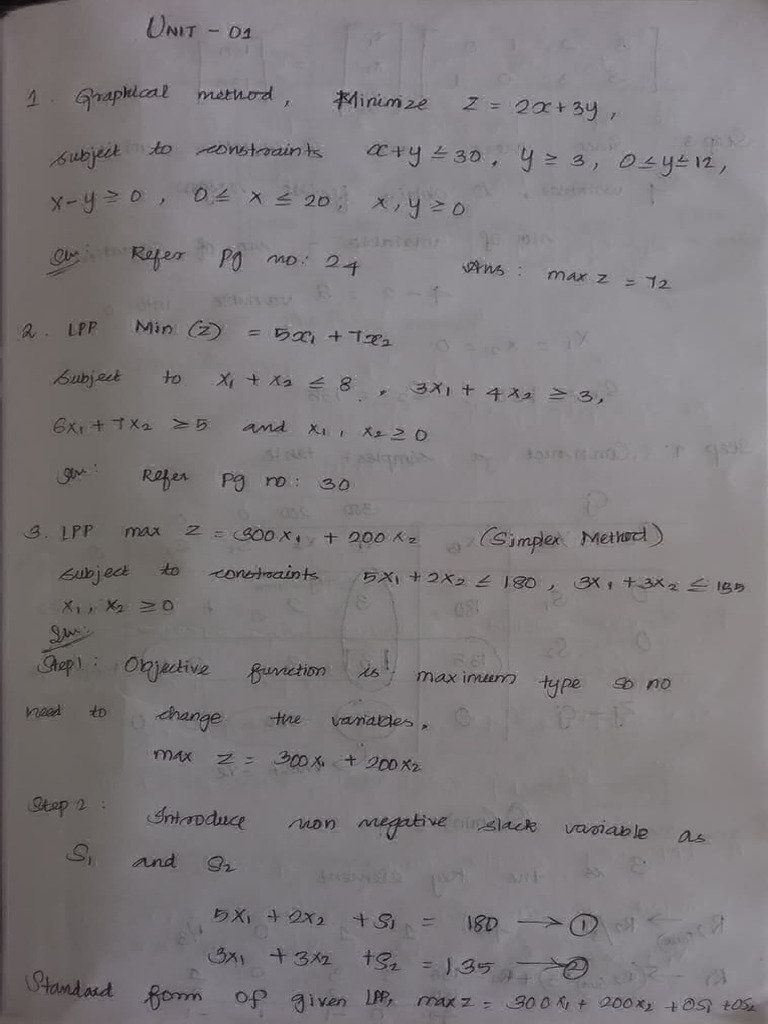 UNIT - 01
1. Graphical method, Minimize Z = 2x+3y,
subject to constraints x+y ≤ 30, y ≥ 3, 0 ≤ y ≤ 12,
x-y ≥ 0, 0 ≤ x ≤ 20, x, y ≥ 0
Refer pg no: 24 Ans: max z = 72
2. LPP Min (z) = 5x1 + 7x2
subject to x1 + x2 ≤ 8, 3x1 + 4x2 ≥ 3,
6x1 + 7x2 ≥ 5 and x1, x2 ≥ 0
Refer pg no: 30
3. LPP max z = 300x1 + 200x2 (Simplex Method)
subject to constraints 5x1 + 2x2 ≤ 180, 3x1 + 3x2 ≤ 135
x1, x2 ≥ 0
Step1: Objective function is maximum type so no
need to change the variables.
max z = 300x1 + 200x2
Step 2: Introduce non negative slack variable as
S1 and S2
5x1 + 2x2 + S1 = 180 → ①
3x1 + 3x2 + S2 = 135 → ②
Standard form of given LPP, max z = 300x1 + 200x2 + 0S1 + 0S2